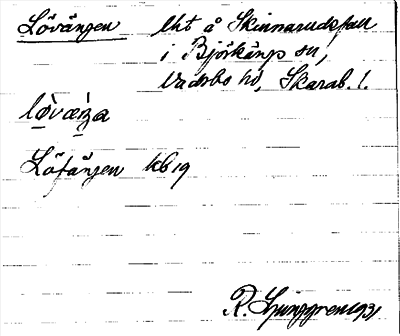 Lövängen lht å Skinnarudsfall
i Björkängs sn,
Vadsbo hd, Skarab. l.
Löfängen kb 19
R. Ljunggren 1931